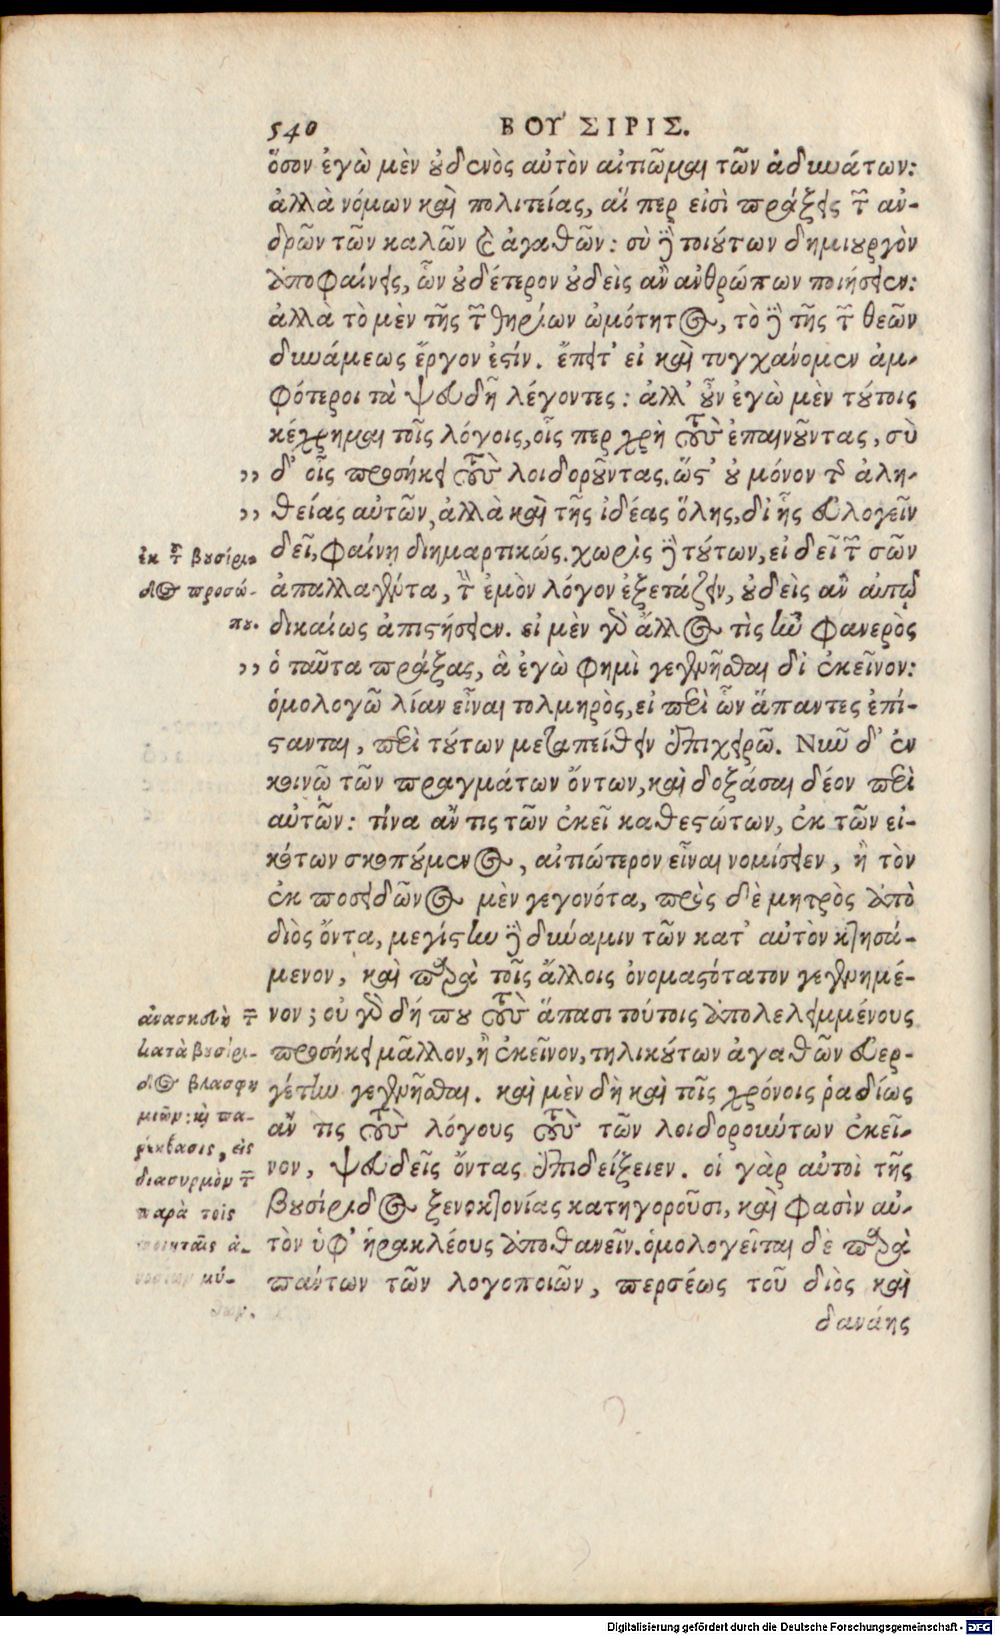 540 ΒΟΥ ΣΙΡΙΣ.
ὅσον ἐγὼ μὲν οὐδενὸς αὐτὸν αἰτιῶμαι τῶν ἀδυνάτων:
ἀλλὰ νόμων καὶ πολιτείας, αἵ περ εἰσὶ πράξεις τῶν ἀν-
δρῶν τῶν καλῶν καὶ ἀγαθῶν: σὺ δὲ τοιούτων δημιουργὸν
ἀποφαίνεις, ὧν οὐδέτερον οὐδεὶς ἂν ἀνθρώπων ποιήσειεν:
ἀλλὰ τὸ μὲν τῆς τῶν θηρίων ὠμότητος, τὸ δὲ τῆς τῶν θεῶν
δυνάμεως ἔργον ἐστίν. ἔπειτ' εἰ καὶ τυγχάνομεν ἀμ-
φότεροι τὰ ψευδῆ λέγοντες: ἀλλ' οὖν ἐγὼ μὲν τούτοις
κέχρημαι τοῖς λόγοις, οἷς περ χρὴ τοὺς ἐπαινοῦντας, σὺ
,, δ' οἷς προσήκει τοὺς λοιδοροῦντας. ὥστ' οὐ μόνον τῆς ἀλη-
,, θείας αὐτῶν, ἀλλὰ καὶ τῆς ἰδέας ὅλης, δι' ἧς εὐλογεῖν
δεῖ, φαίνῃ διημαρτικώς. χωρὶς δὲ τούτων, εἰ δεῖ τῶν σῶν
ἀπαλλαγέντα, τὸν ἐμὸν λόγον ἐξετάζειν, οὐδεὶς ἂν αὐτῷ
δικαίως ἀπιστήσειεν. εἰ μὲν γὰρ ἄλλος τὶς ἦν φανερὸς
,, ὁ ταῦτα πράξας, ἃ ἐγὼ φημὶ γεγενῆσθαι δι' ἐκεῖνον:
ὁμολογῶ λίαν εἶναι τολμηρὸς, εἰ περὶ ὧν ἅπαντες ἐπί-
στανται, περὶ τούτων μεταπείθειν ἐπιχειρῶ. Νῦν δ' ἐν
κοινῷ τῶν πραγμάτων ὄντων, καὶ δοξάσαι δέον περὶ
αὐτῶν: τίνα ἄν τις τῶν ἐκεῖ καθεστώτων, ἐκ τῶν εἰ-
κότων σκοπούμενος, αἰτιώτερον εἶναι νομίσειεν, ἢ τὸν
ἐκ ποσειδῶνος μὲν γεγονότα, πρὸς δὲ μητρὸς ἀπὸ
διὸς ὄντα, μεγίστην δὲ δύναμιν τῶν κατ' αὐτὸν κτησά-
μενον, καὶ παρὰ τοῖς ἄλλοις ὀνομαστότατον γεγενημέ-
νον; οὐ γὰρ δή που τοὺς ἅπασι τούτοις ἀπολελειμμένους
προσήκει μᾶλλον, ἢ ἐκεῖνον, τηλικούτων ἀγαθῶν εὐερ-
γέτην γεγενῆσθαι. καὶ μὲν δὴ καὶ τοῖς χρόνοις ῥαδίως
ἄν τις τοὺς λόγους τοὺς τῶν λοιδορούντων ἐκεῖ-
νον, ψευδεῖς ὄντας ἐπιδείξειεν. οἱ γὰρ αὐτοὶ τῆς
βουσίριδος ξενοκτονίας κατηγοροῦσι, καὶ φασὶν αὐ-
τὸν ὑφ' ἡρακλέους ἀποθανεῖν. ὁμολογεῖται δὲ παρὰ
πάντων τῶν λογοποιῶν, περσέως τοῦ διὸς καὶ
δανάης
ἐκ τοῦ βουσίρι-
δος προσώ-
που.
ἀνασκευὴ τῶν
κατὰ βουσίρι-
δος βλασφη
μιῶν: καὶ πα-
ρέκβασις, εἰς
διασυρμὸν τῶν
παρὰ τοῖς
ποιηταῖς ἀ-
μύ-
θων.